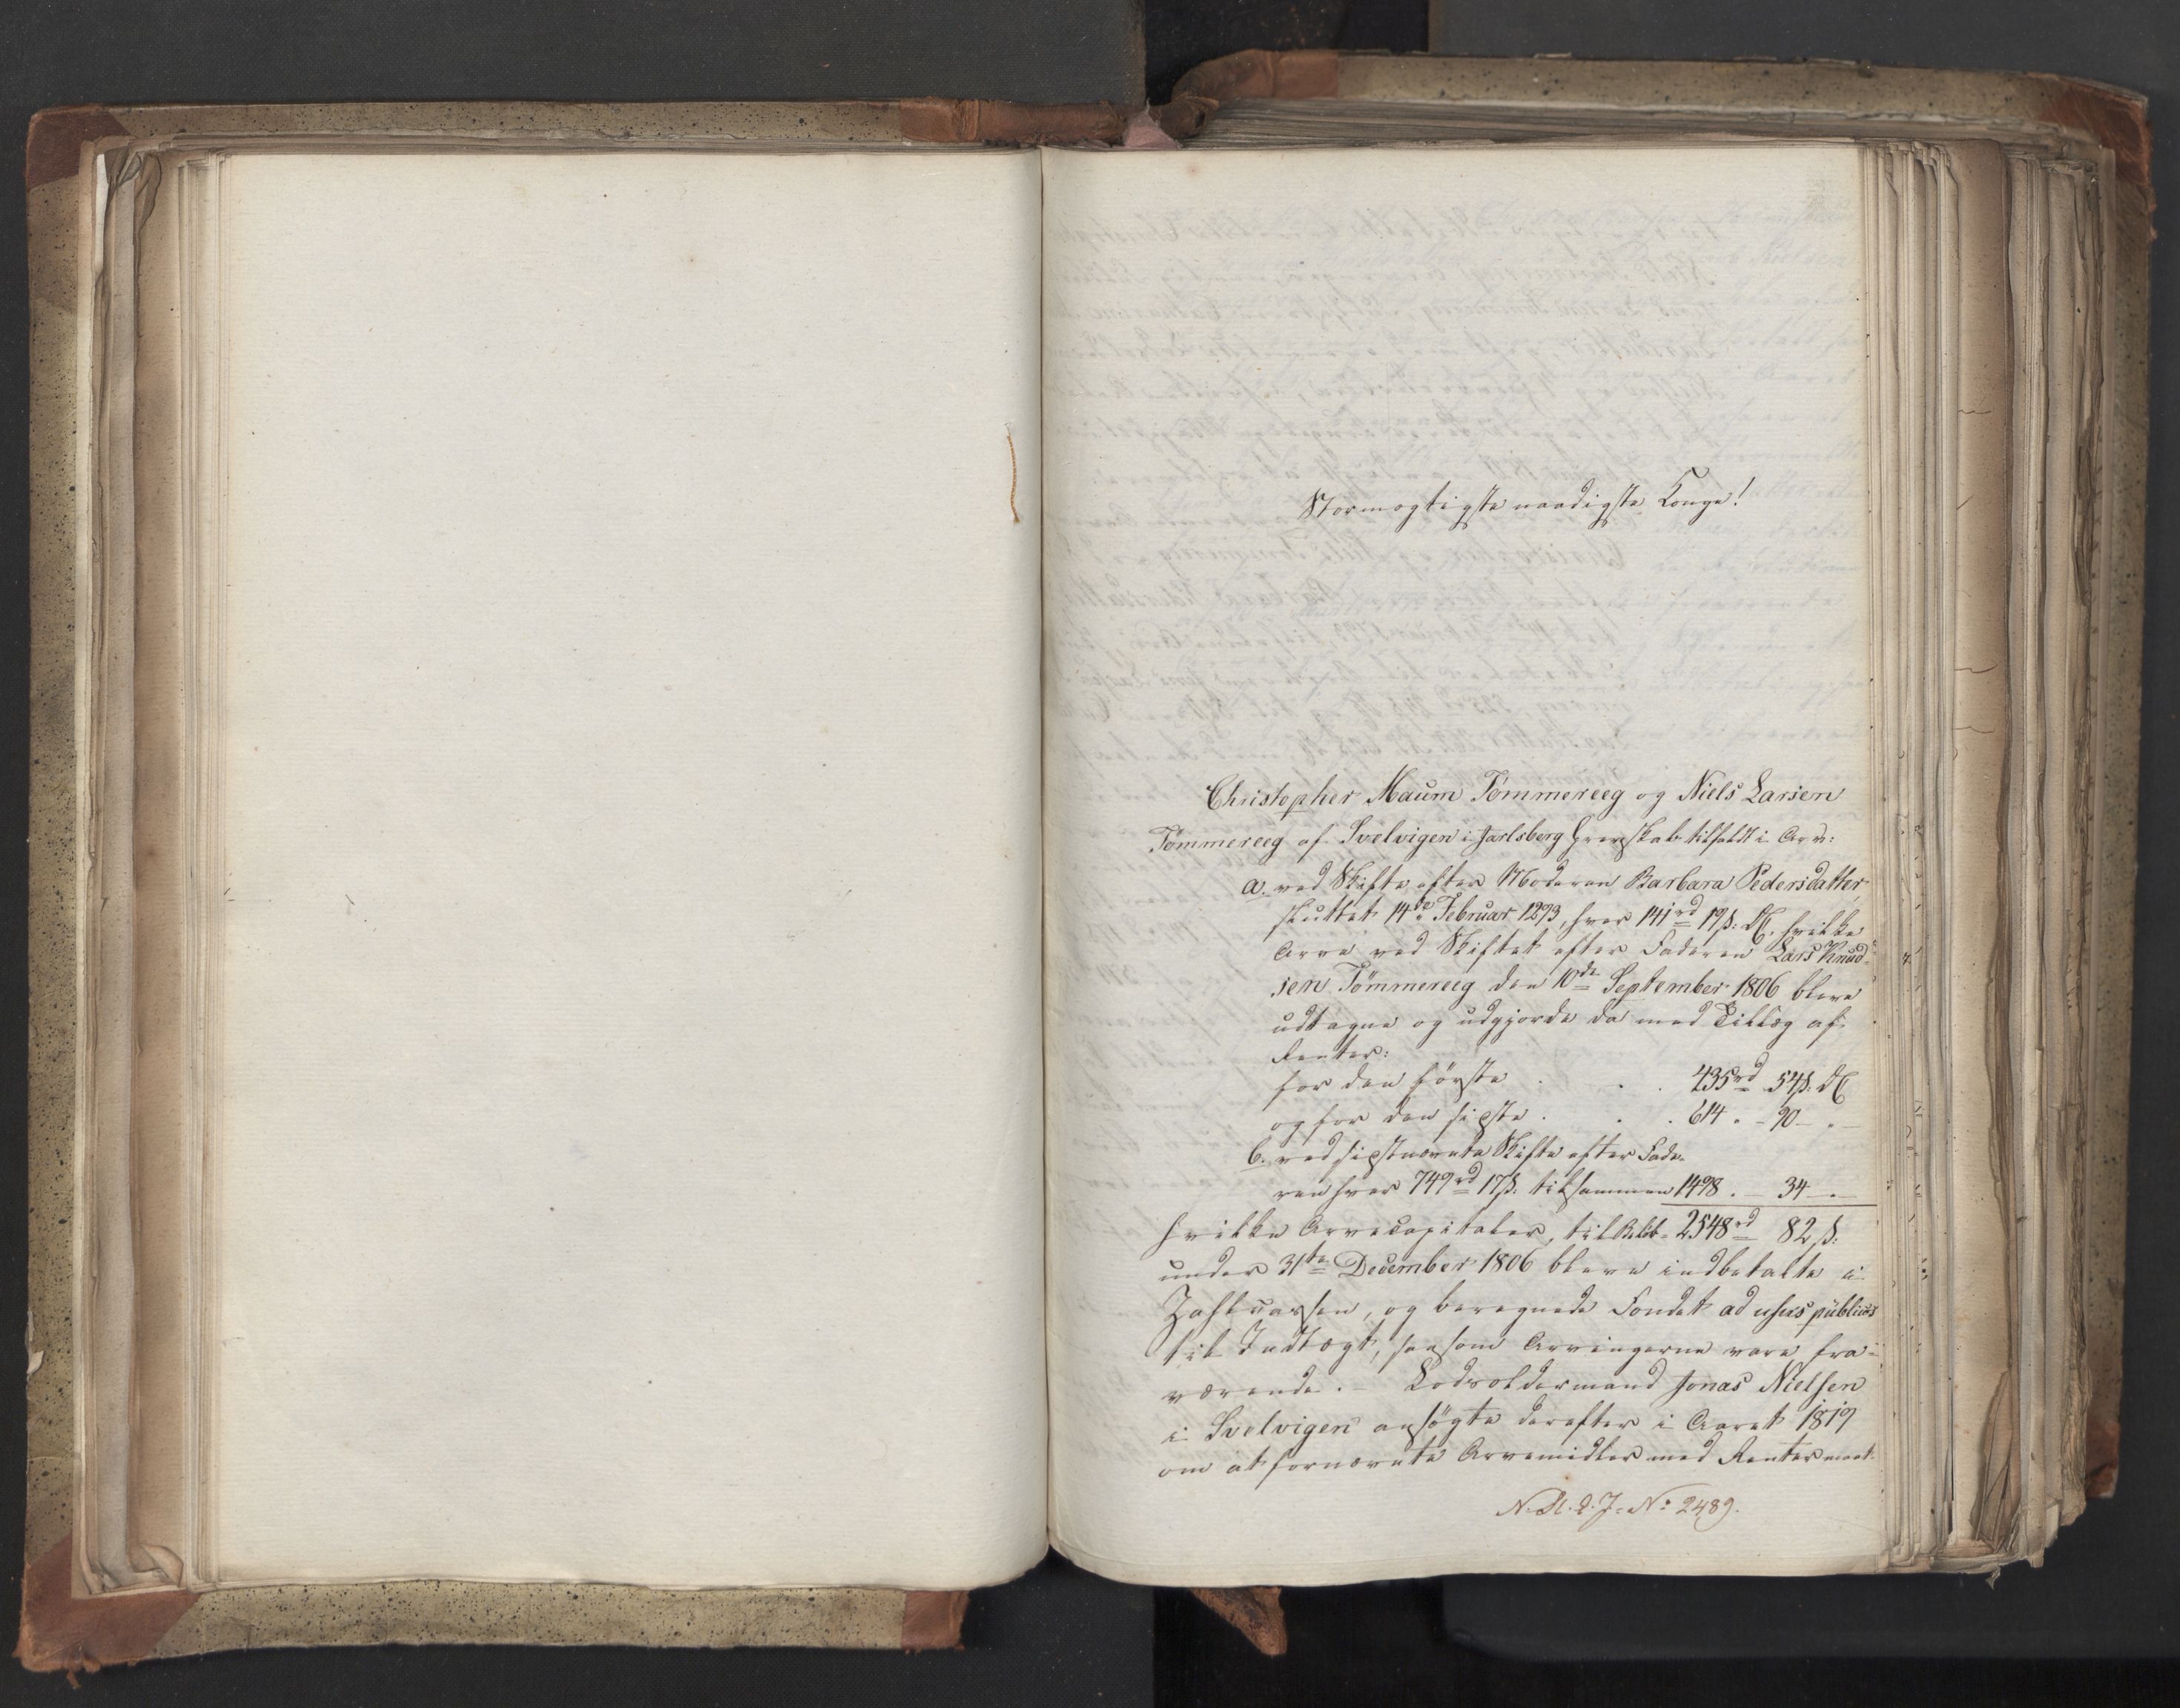 Stormægtigste naadigste Konge!
Christopher Maum Tömmereeg og Niels Larsen
Tömmereeg af Svelvigen i Jarlsberg Grevskab tilfaldt i Arv:
a. ved Skifte efter Moderen Barbara Pedersdatter,
sluttet 14de Februar 1793, hver 141rd 19ß. DC. hvilke
Arve ved Skiftet efter Faderen Lars Knud-
sen Tömmereeg den 10de September 1806 bleve
udtagne og udgjorde da med Tillæg af
Renter:
for den første . . . 435rd 54ß. DC
og for den sidste . . . 614 " - 90 - "
b. ved sidstnævnte Skifte efter Fade-
ren hver 749rd 17ß. tilsammen 1498 . - 34 - .
hvilke Arvecapitaler, til Beløb 2548rd 82 ß.
under 31te December 1806 bleve indbetalte i
Zahlcassen, og beregnede Fondet ad usus publicos
til Indtægt, saasom Arvingerne vare fra-
værende. - Lodsoldermand Jonas Nielsen
i Svelvigen ansøgte derefter i Aaret 1819
om at fornævnte Arvemidler med Renter maat-
No 2489.